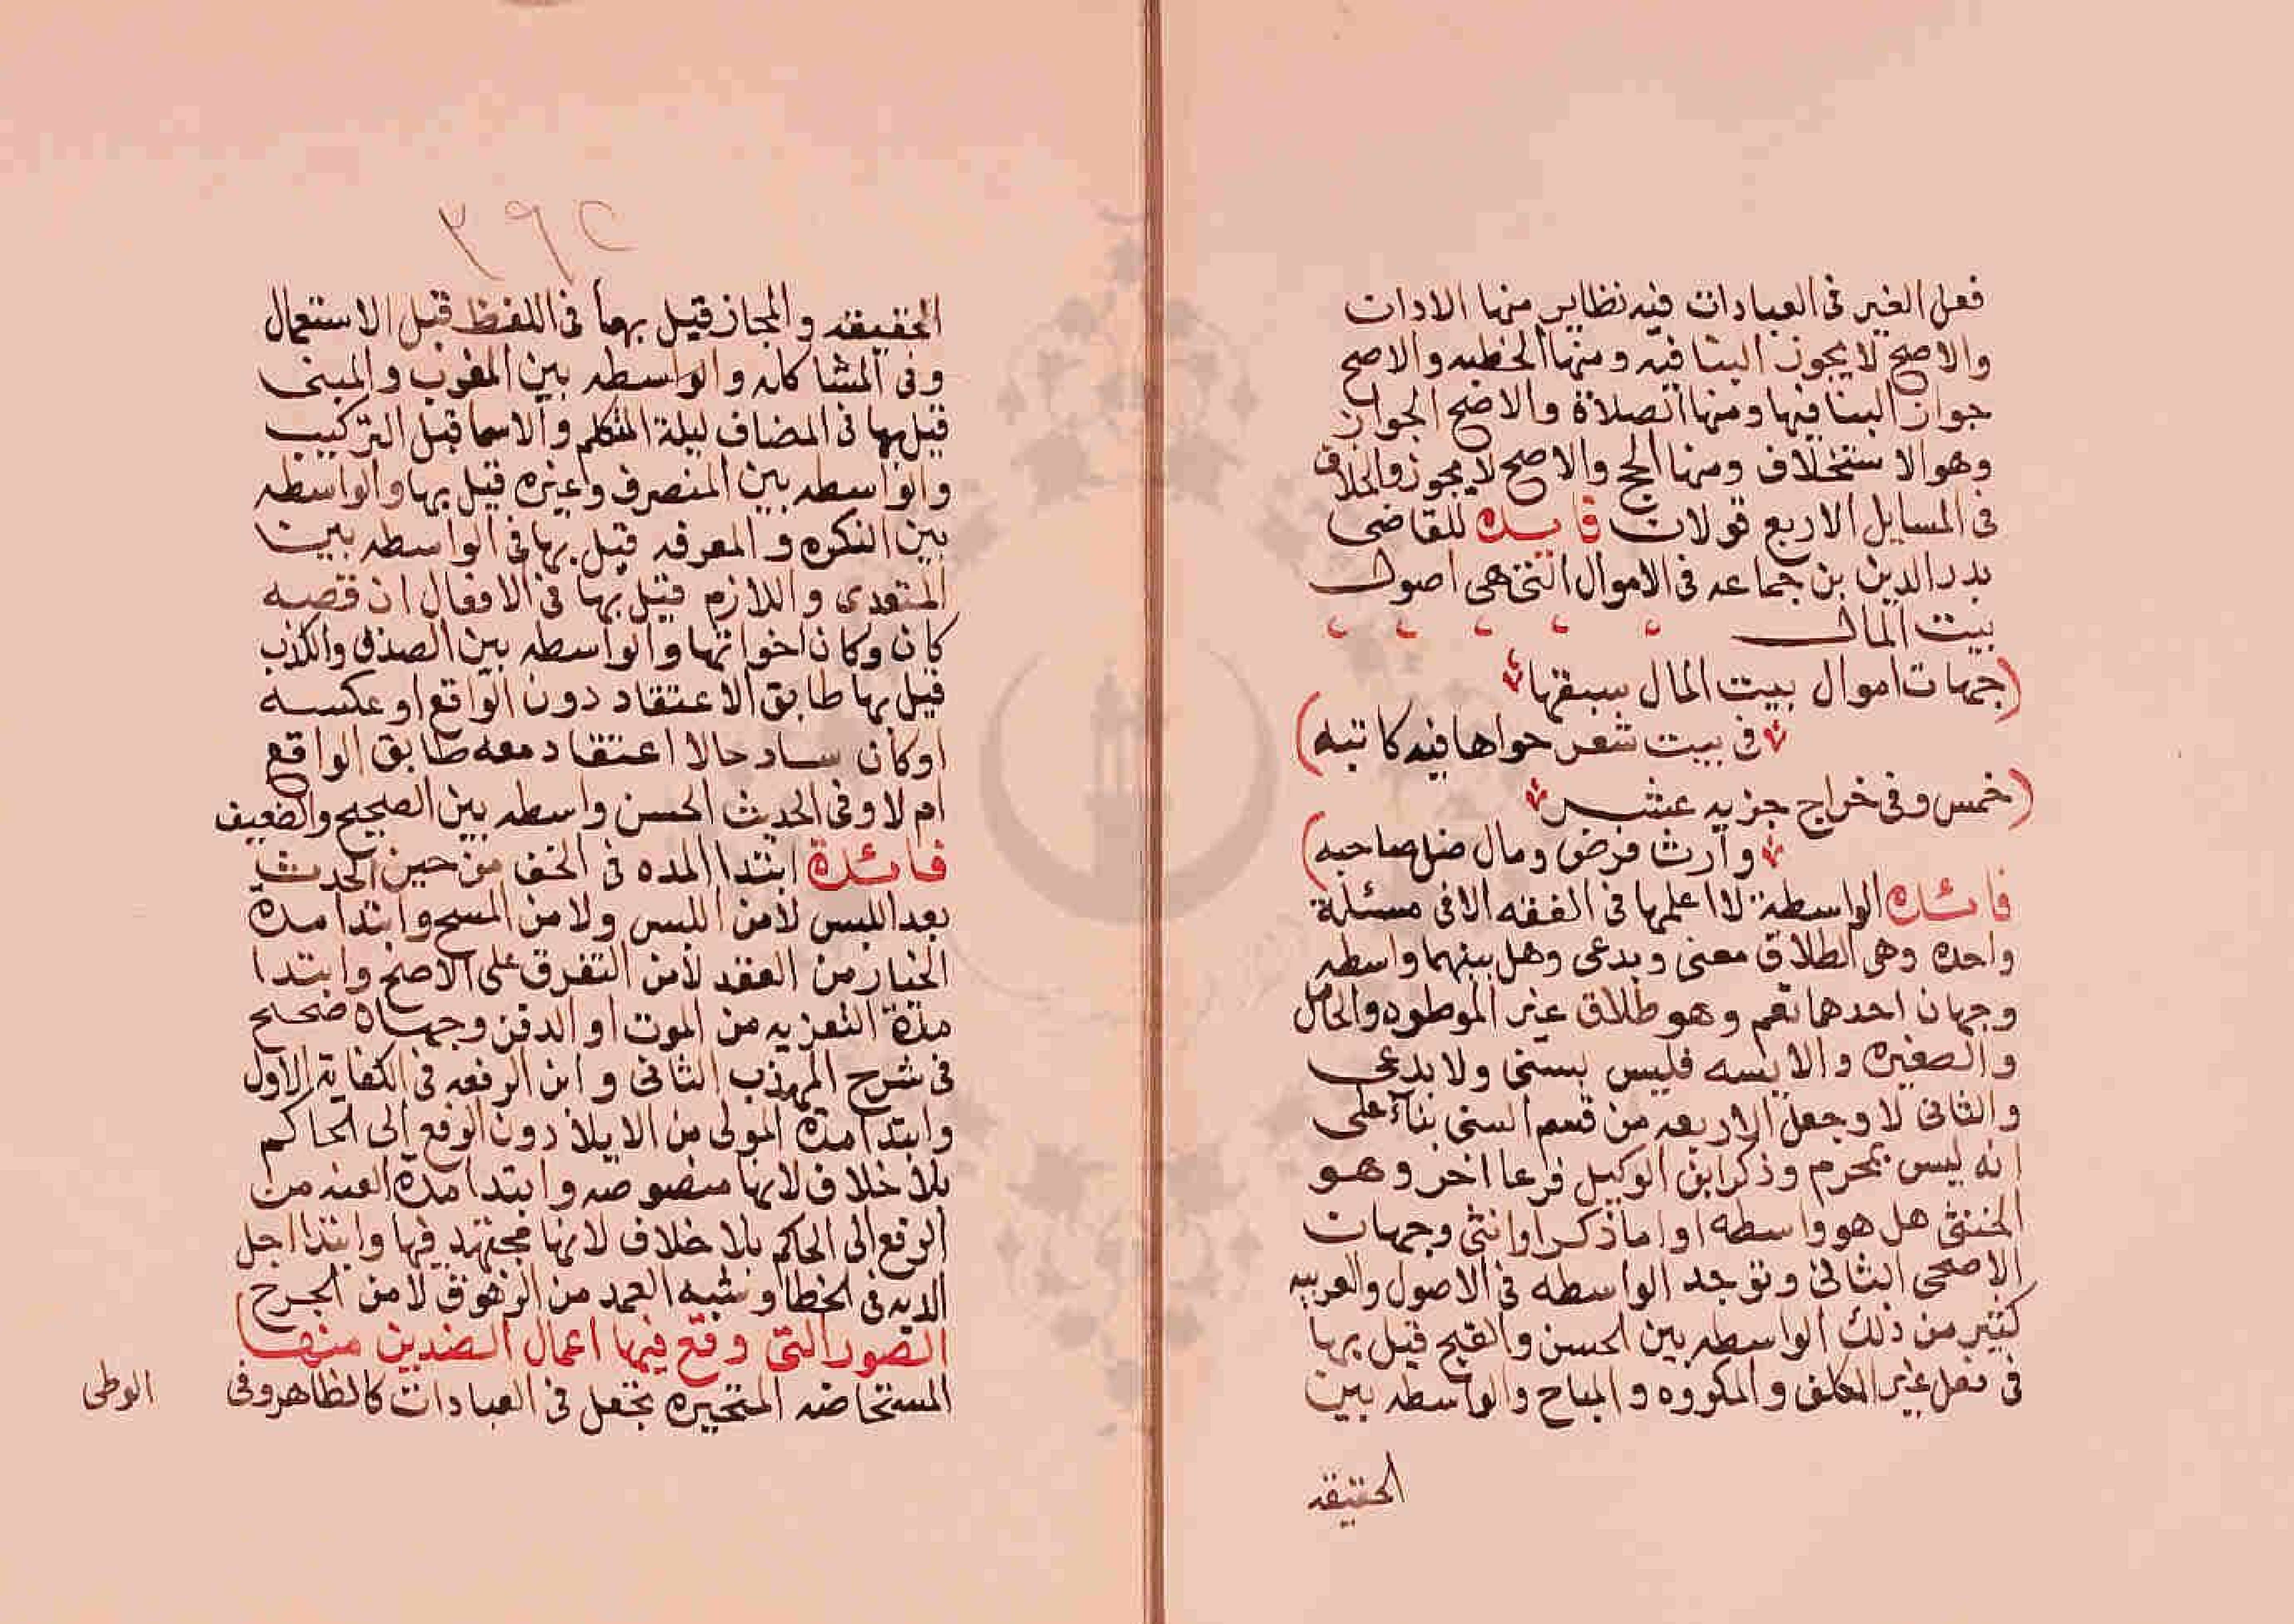 فعل الغير فى العبادات فيه نظاير منها الادات
والاصح لا يجوز البنا فيه ومنها الخطبه والاصح
جواز البنا فيها ومنها الصلاة والاصح الجواز
وهو الاستخلاف ومنها الحج والاصح لا يجوز والخلاف
فى المسايل الاربع قولان فايده للقاضى
بدر الدين بن جماعه فى الاموال التى هى اصول
بيت المال
جهات اموال بيت المال سبقتها
فى بيت شعر حواها فيه كاتبه
خمس وفى خراج جزيه عشر
وارث فرض ومال ضل صاحبه
فائده الواسطة لا اعلمها فى الفقه الا فى مسئلة
واحده وهى الطلاق معنى وبدعى وهل بينهما واسطه
وجهان احدهما نعم وهو طلاق غير الموطوه والحامل
والصغيره والايسه فليس بسنى ولا بدعى
والثانى لا وجعل الاربعه من قسم السنى بناء على
انه ليس بمحرم وذكر ابن الوكيل فرعا اخر وهو
الخنثى هل هو واسطه او اما ذكر او انثى وجهان
الاصحى الثانى وتوجد الواسطه فى الاصول والعربيه
كثير من ذلك الواسطه بين الحسن والقبح قيل بها
فى فعل غير المكلف والمكروه والمباح والواسطه بين
الحقيقه
٢٩٢
الحقيقه والمجاز قيل بها فى اللفظ قبل الاستعمال
وفى المشاكله والواسطه بين المعرب والمبنى
قيل بها فى المضاف ليلة المتكلم والاسما قبل التركيب
والواسطه بين المنصرف وغيره قيل بها والواسطه
بين النكره والمعرفه قيل بها فى الواسطه بين
المتعدى واللازم قيل بها فى الافعال ان قصيه
كان وكان اخواتها والواسطه بين الصدق والكذب
قيل بها طابق الاعتقاد دون الواقع او عكسه
اوكان ساد حالا اعتقاد معه طابق الواقع
ام لا وفى الحديث الحسن واسطه بين الصحيح والضعيف
فائدة ابتدا المده فى الخف من حين الحدث
بعد اللبس لا من اللبس ولا من المسح وابتدا مدة
الخيار من العقد لا من التفرق على الاصح وابتدا
مدة التعزيه من الموت او الدفن وجهان صحح
فى شرح المهذب الثانى وابن الرفعه فى الكفايه الاول
وابتدا مدة المولى من الايلا دون الرفع الى الحاكم
بلا خلاف لانها منصوصه وابتدا مدة العنه من
الرفع الى الحاكم بلا خلاف لانها مجتهد فيها وابتدا اجل
الديه فى الخطا وشبه العمد من الزهوق لا من الجرح
الصور التى وقع فيها اعمال الضدين منها
المستحاضه المتحيره تجعل فى العبادات كالطاهر وفى
الوطى